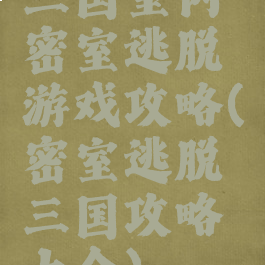 三国室内
密室逃脱
游戏攻略(
密室逃脱
三国攻略
大全)